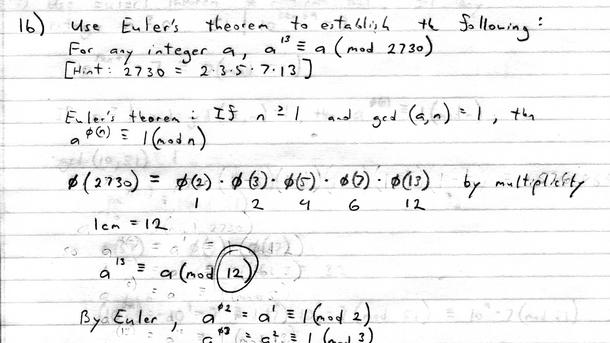 1b) Use Euler's theorem to establish th following:
For any integer a, a¹³ ≡ a (mod 2730)
[Hint: 2730 = 2·3·5·7·13]
Euler's theorem: If n ≥ 1 and gcd(a,n) = 1, thn
a^φ(n) ≡ 1 (mod n)
φ(2730) = φ(2)·φ(3)·φ(5)·φ(7)·φ(13) by multiplicity
1 2 4 6 12
lcm = 12
a¹³ ≡ a (mod 12)
By Euler, a^φ2 = a¹ ≡ 1 (mod 2)
a^φ3 = a² ≡ 1 (mod 3)